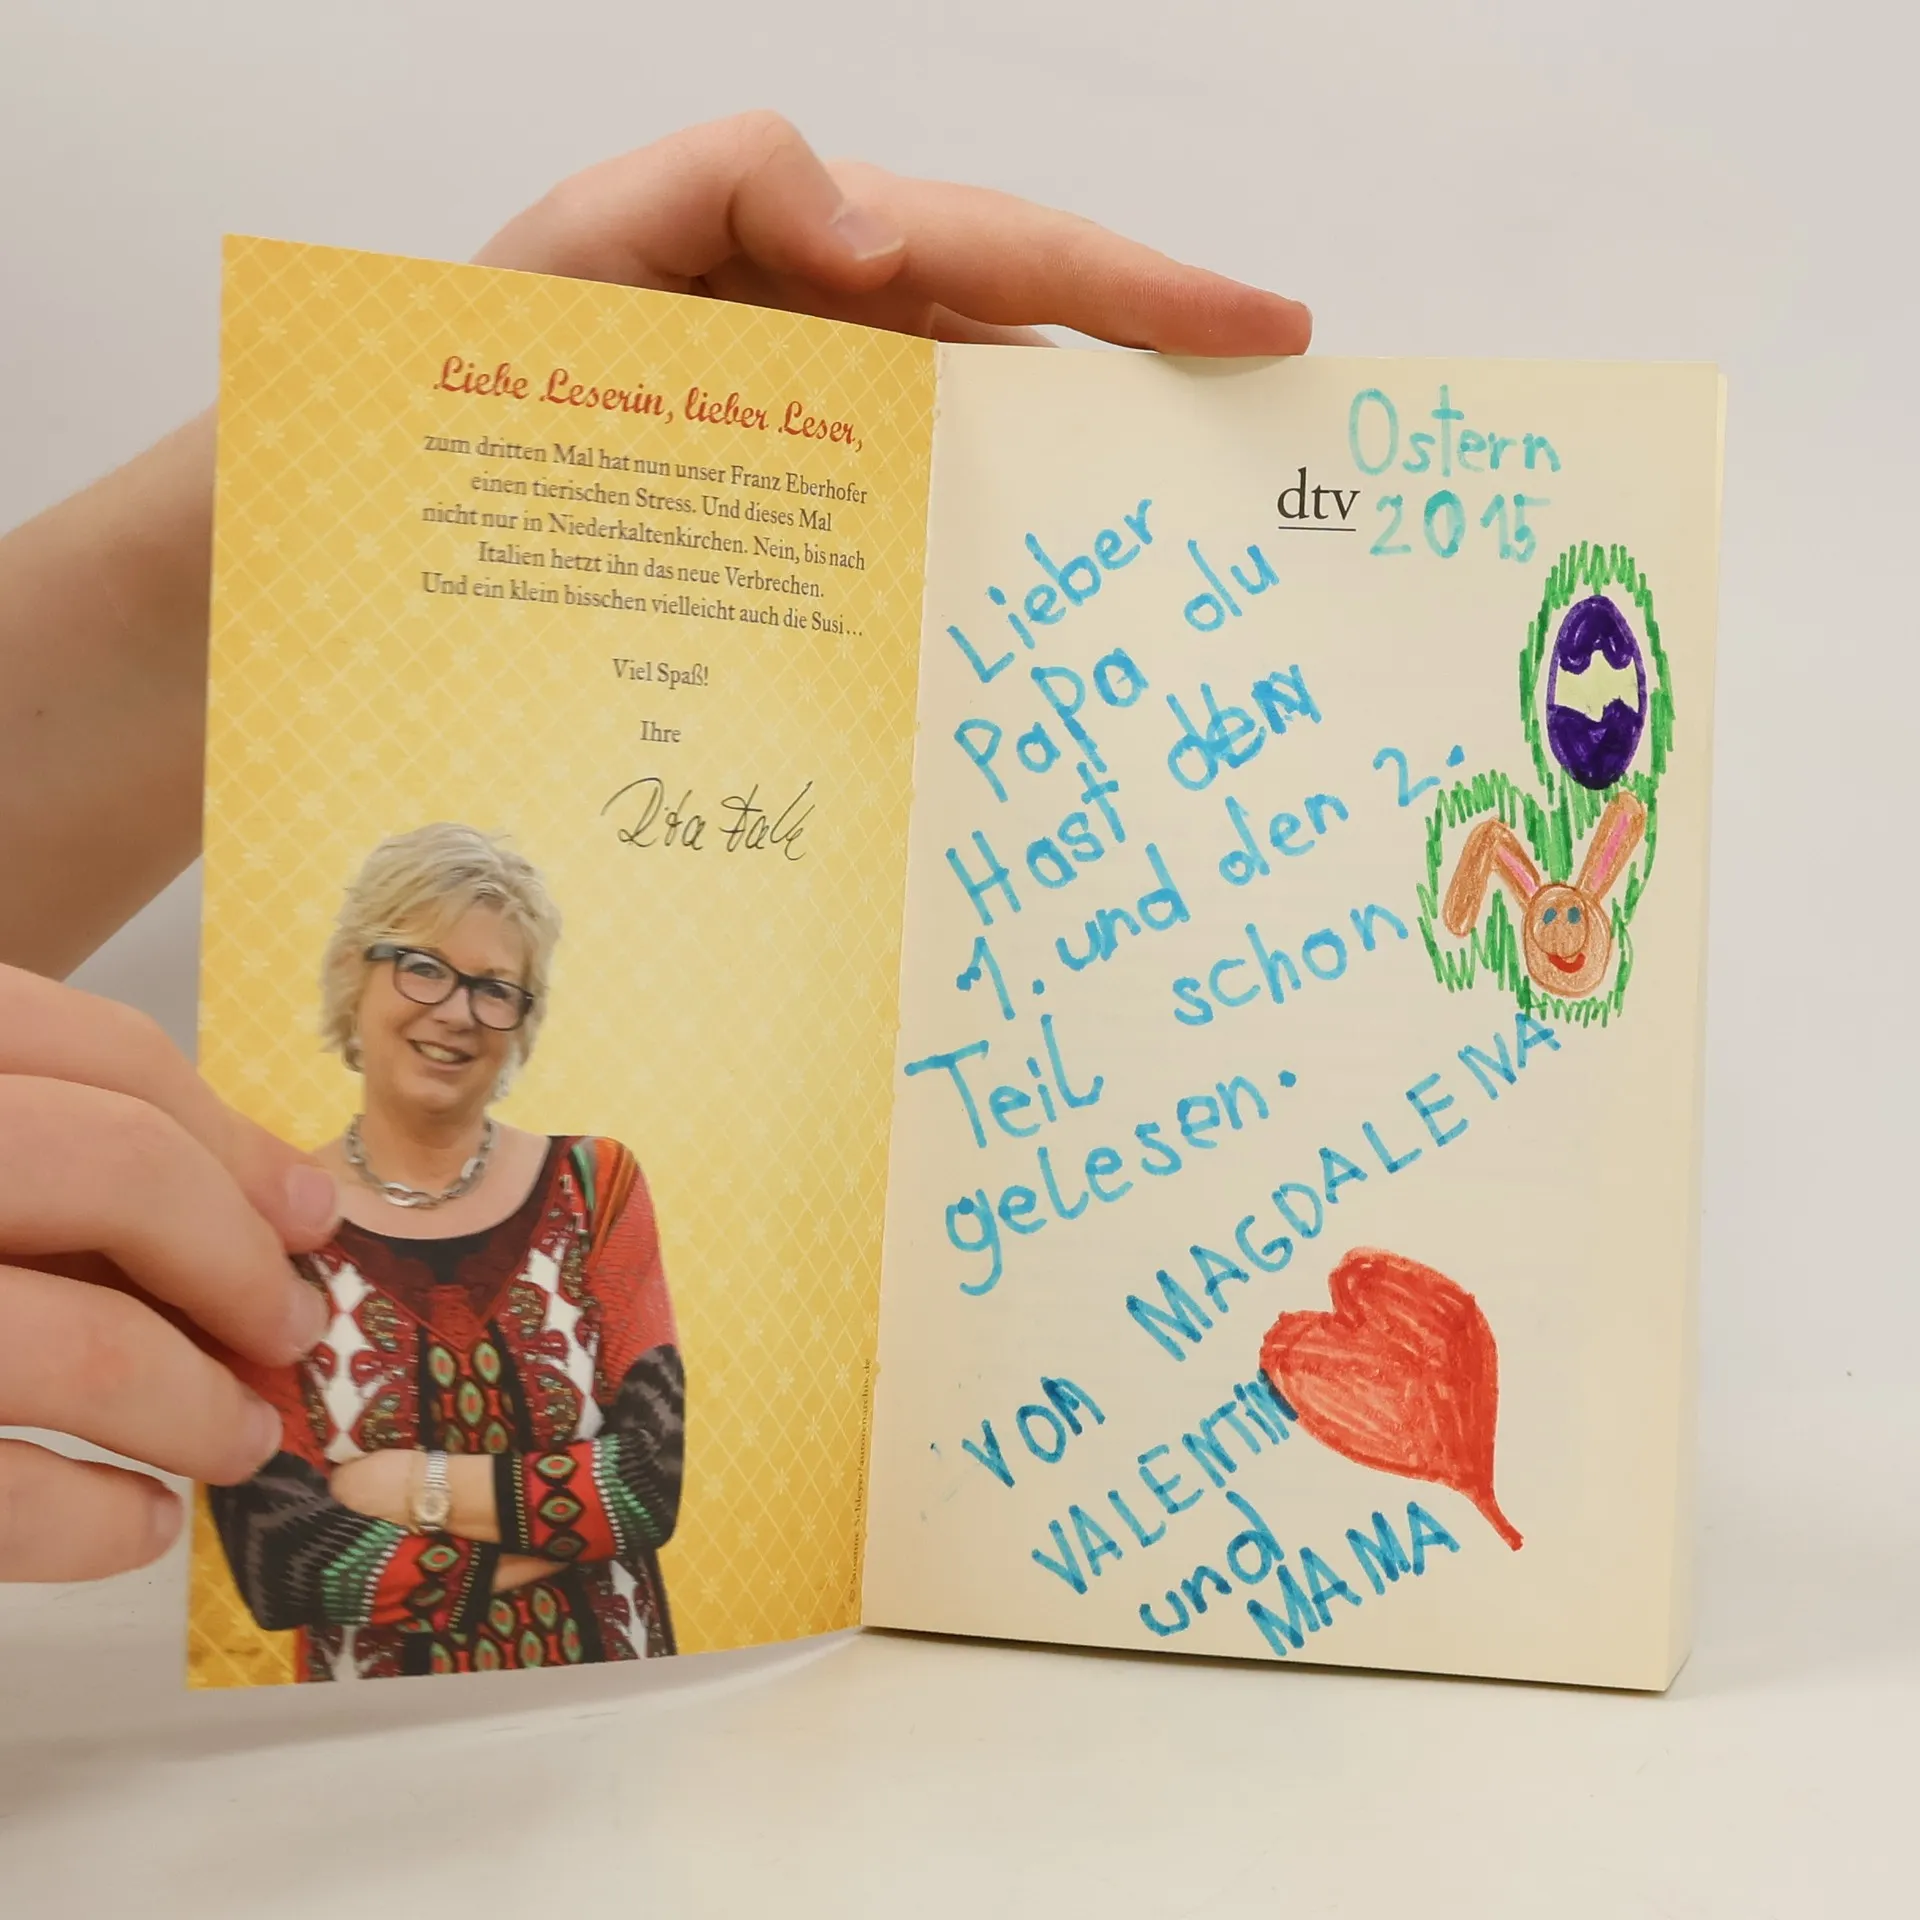 Liebe Leserin, lieber Leser,
zum dritten Mal hat nun unser Franz Eberhofer
einen tierischen Stress. Und dieses Mal
nicht nur in Niederkaltenkirchen. Nein, bis nach
Italien hetzt ihn das neue Verbrechen.
Und ein klein bisschen vielleicht auch die Susi...
Viel Spaß!
Ihre
Rita Falk
Ostern
dtv 2015
Lieber
Papa du
Hast den
1. und den 2.
Teil schon
gelesen.
VON MAGDALENA
VALENTIN
und
MAMA